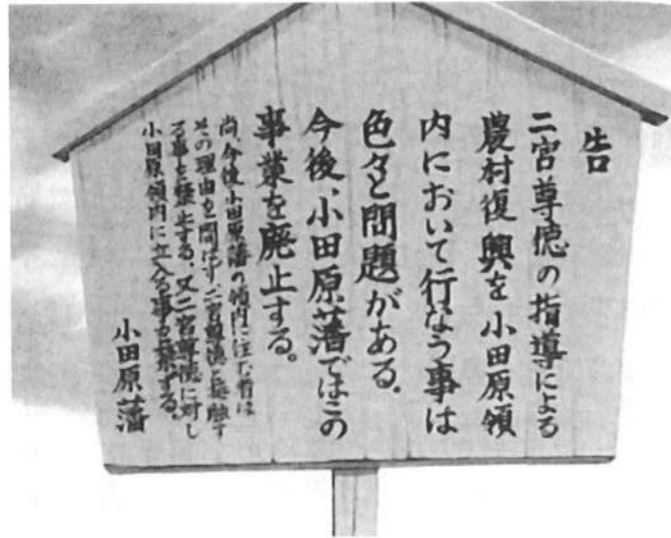 告
二宮尊徳の指導による
農村復興を小田原領
内において行なう事は
色々と問題がある。
今後、小田原藩ではこの
事業を廃止する。
尚、今後小田原藩の領内に住む者は
その理由を間はず二宮尊徳と接触す
る事を禁止する。又二宮尊徳に対し
小田原領内に立入る事を禁ずる。
小田原藩